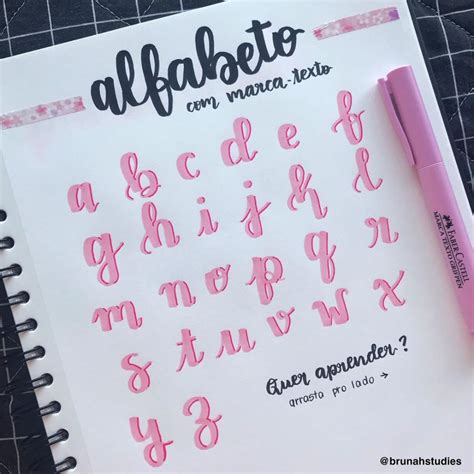 alfabeto
com marca-texto
a b c d e f
g h i j k l
m n o p q r
s t u v w x
y z
Quer aprender?
arrasta pro lado →
FABER-CASTELL
MARCA TEXTO GRIFPEN
@brunahstudies